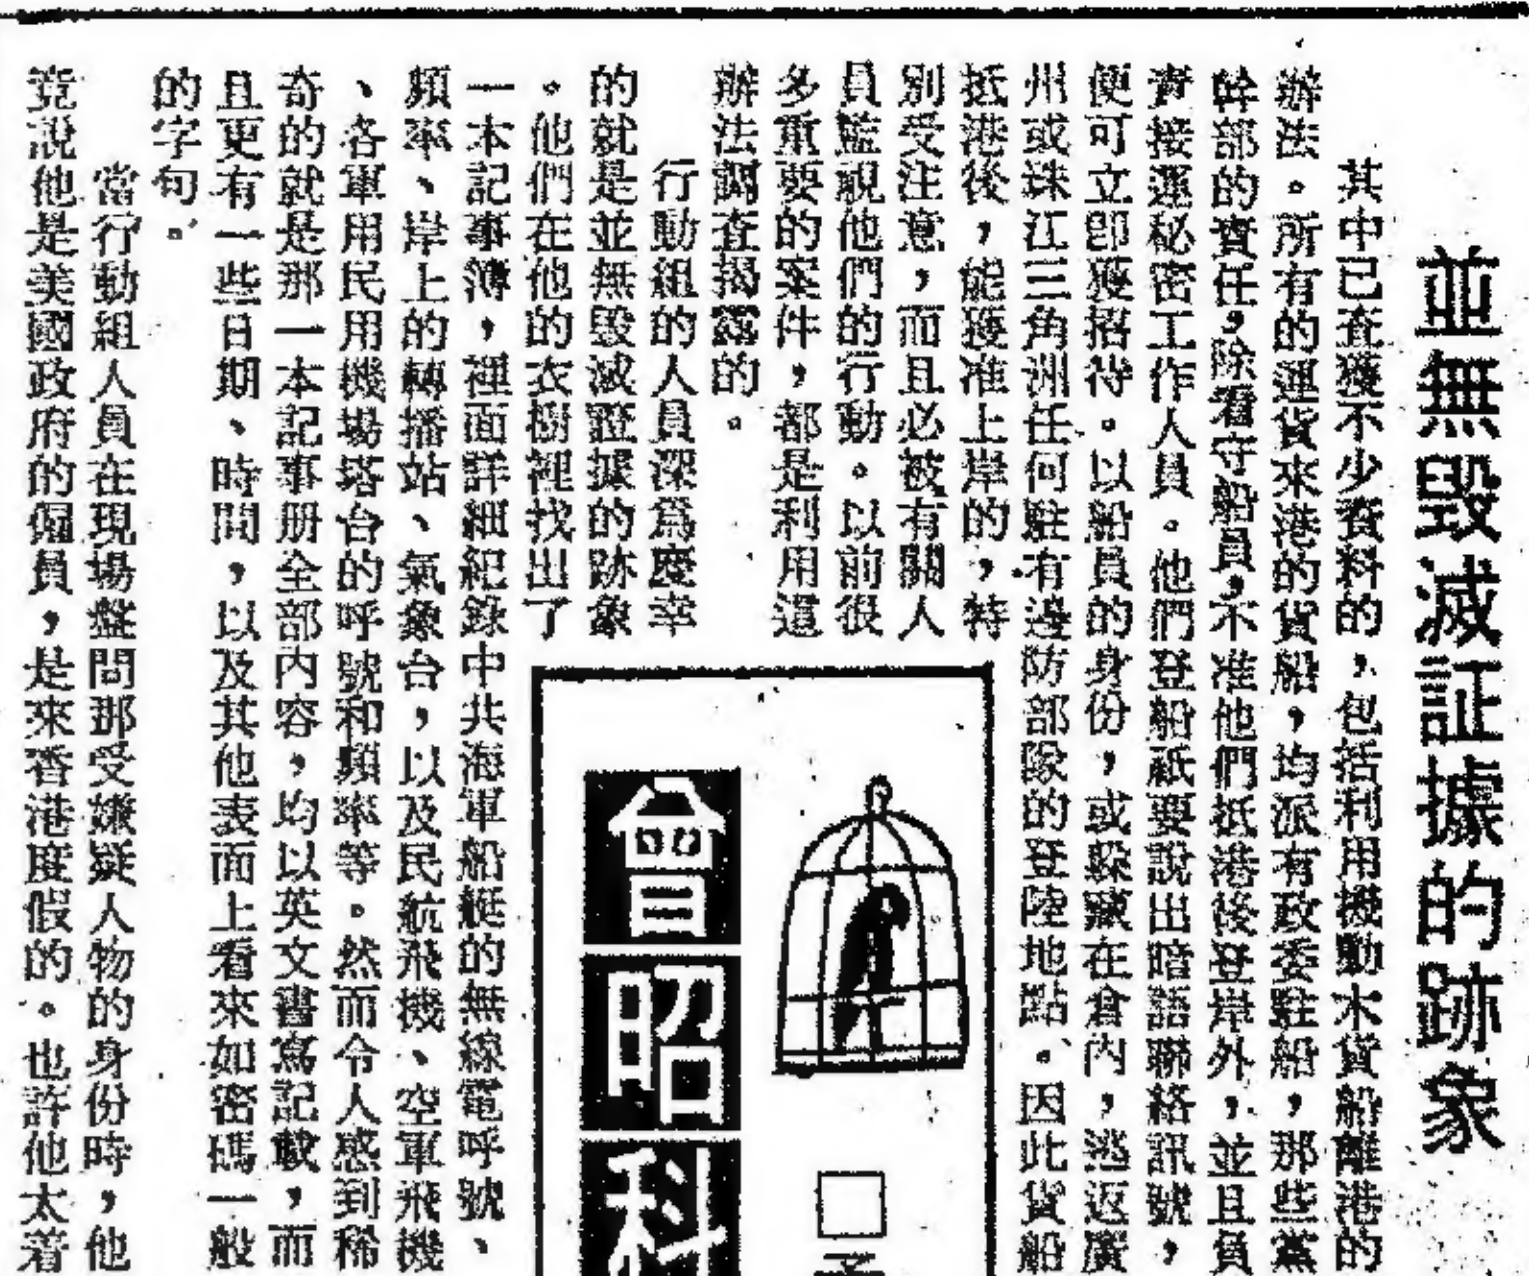 並無毀滅証據的跡象
其中已查獲不少資料的，包括利用機動木貨船離港的
辦法。所有的運貨來港的貨船，均派有政委駐船，那些黨
幹部的責任，除看守船員，不准他們抵港後登岸外，並且負
責接運秘密工作人員。他們登船祇要說出暗語聯絡訊號，
便可立即獲招待。以船員的身份，或躲藏在倉內，逃返廣
州或珠江三角洲任何駐有邊防部隊的登陸地點。因此貨船
抵港後，能獲准上岸的，特
別受注意，而且必被有關人
員監視他們的行動。以前很
多重要的案件，都是利用這
辦法調查揭露的。
行動組的人員深爲慶幸
的就是並無毀滅證據的跡象
。他們在他的衣櫥裡找出了
一本記事簿，裡面詳細紀錄中共海軍船艇的無線電呼號、
頻率、岸上的轉播站、氣象台，以及民航飛機、空軍飛機
、各軍用民用機場塔台的呼號和頻率等。然而令人感到稀
奇的就是那一本記事册全部內容，均以英文書寫記載，而
且更有一些日期、時間，以及其他表面上看來如密碼一般
的字句。
當行動組人員在現場盤問那受嫌疑人物的身份時，他
竟說他是美國政府的僱員，是來香港度假的。也許他太着
曾昭科